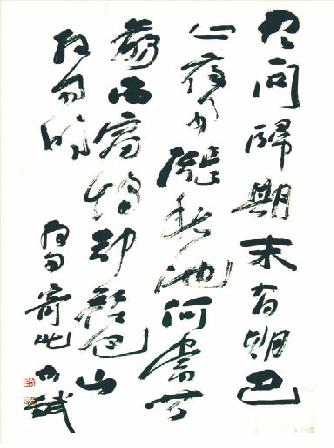 君問歸期未有期巴
山夜雨漲秋池何當共
剪西窗燭却話巴山
夜雨時
夜雨寄北 斌